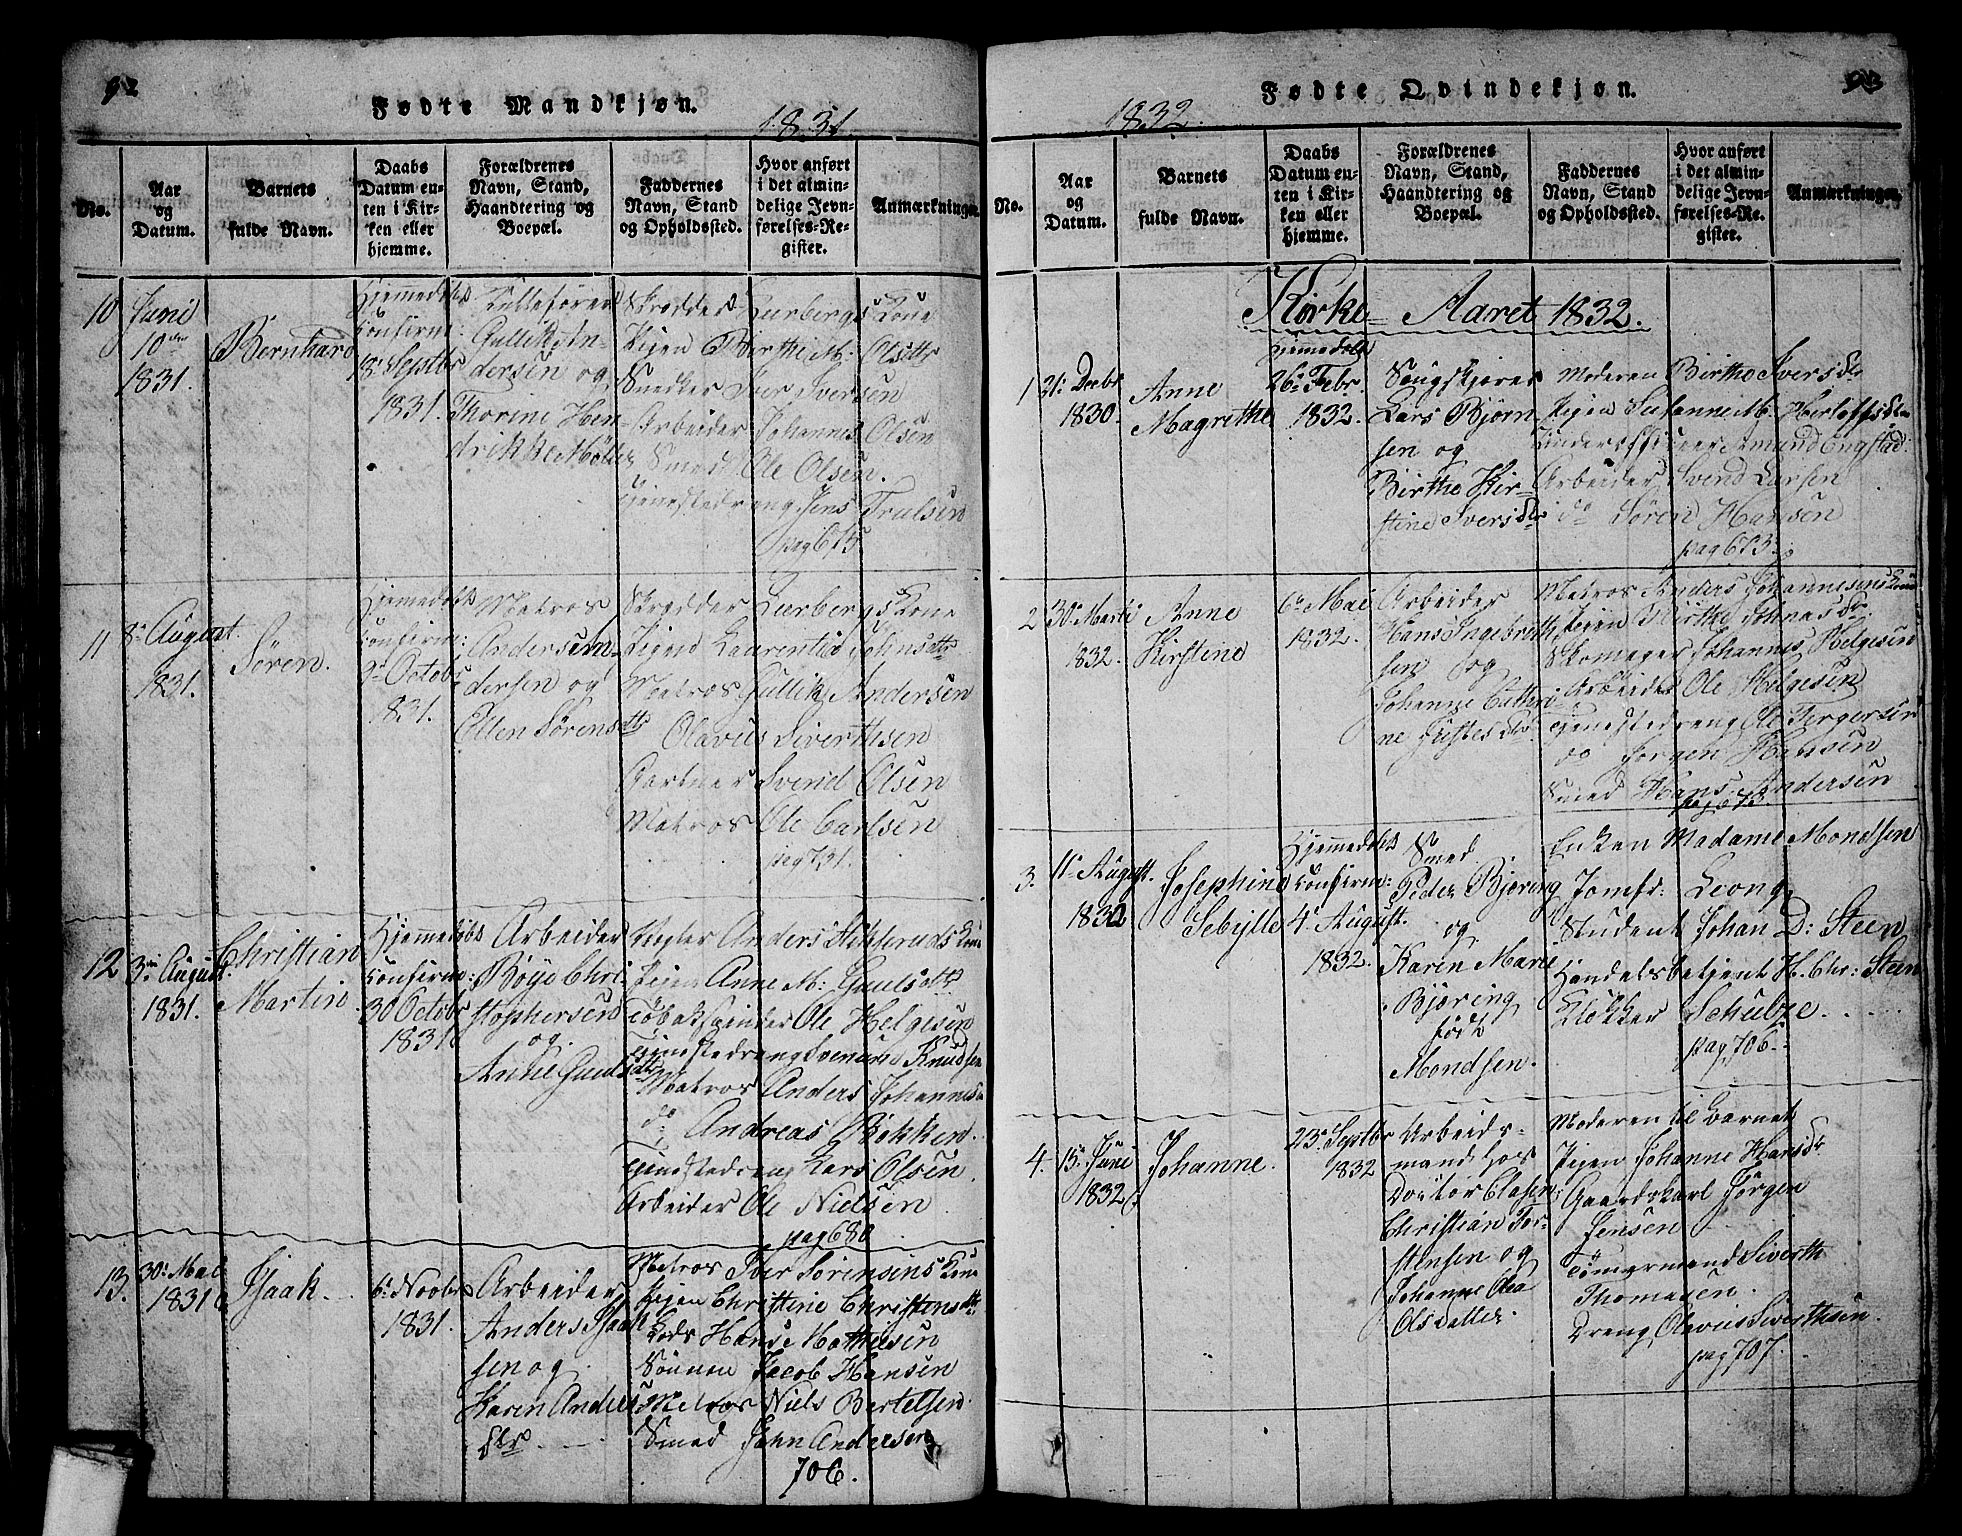 92
Fødte Mandkjøn.
1831.
No.
Aar
og
Datum.
Barnets
fulde Navn.
Daabs
Datum en-
ten i Kir-
ken eller
hjemme.
Forældrenes
Navn, Stand,
Haandtering og
Boepæl.
Faddernes
Navn, Stand
og Opholdssted.
Hvor anført
i det almin-
delige Jevn-
førelses-Re-
gister.
Anmærkninger.
10
Juni
10de
1831.
Bernhard
Hjemmedøbt
Confirm:
18 Septbr
1831.
Gullik An-
dersen og
Thorine Hen-
drikke Møller
Skrædder Lurbergs Kone
Pigen Birthe M: Olsdtr
Snedker Iver Iversen
Arbeider Johannes Olsen
Smed Ole Olsen.
Tjenestedreng Jens Trulsen
pag 675.
11
8 August.
1831.
Søren.
Hjemmedøbt
Confirm:
9 Octobr
1831.
Matros
Anders An-
dersen og
Ellen Sørensdtr
Skrædder Lurbergs Kone
Pigen Laurentia Johnsdtr
Matros Gullik Andersen
Olavus Siverthsen
Gartner Svend Olsen
Matros Ole Carlsen
pag 721.
12
3 August.
1831.
Christian
Martin
Hjemmedøbt
Confirm:
30 Octobr
1831
Arbeider
Böye Chri-
stophersen
og
Anne Guulsdtr
Anders Kone
Pigen Anne M: Guulsdtr
Tobakspinder Ole Helgesen
Tjenestedreng Svend Knudsen
Matros Anders Johannes
do Andreas Bökken.
Tjenestedreng Lars Olsen.
Arbeider Ole Nielsen
pag 680
13.
30 Mai
1831
Isaak.
6 Novbr
1831.
Arbeider
Anders Isaak-
sen og
Karen Anders
dtr
Matros Iver Sörensens Kone
Pigen Christine Christensdtr
Lods Hans Mathisen
Sönnen Jacob Hansen
Matros Niels Bertelsen.
Smed John Andersen
706.
93
Fødte Qvindekjøn.
1832.
No.
Aar
og
Datum.
Barnets
fulde Navn.
Daabs
Datum en-
ten i Kir-
ken eller
hjemme.
Forældrenes
Navn, Stand,
Haandtering og
Boepæl.
Faddernes
Navn, Stand
og Opholdssted.
Hvor anført
i det almin-
delige Jevn-
førelses-Re-
gister.
Anmærkninger.
Kirke-Aaret 1832.
1
31 Decbr
1830.
Anne
Magrethe
Hjemmedøbt
26 Febr.
1832.
Lars Björn-
sen og
Birthe Kir-
stine Iversdtr
Moderen Birthe Iversdtr
Pigen Susanne M. Herlofsdtr
Underofficeer Amund Engstad.
Arbeider Svend Larsen
do Sören Hansen
pag 673.
2
30 Marti
1832.
Anne
Kirstine
6 Mai
1832.
Arbeider
Hans Ingebreth-
sen og
Johanne Cathri-
ne Justesdtr
Matros Anders Johannesens Kone
Pigen Birthe Johnasdtr
Skomager Johannes Helgesen
Arbeider Ole Helgesen
Tjenestedreng Ole Tergersen
do Jørgen Hansen
Smed Hans Andersen
3.
11 August.
1832
Josephine
Sebylle
Hjemmedøbt
Confirm:
4 August.
1832.
Smed
Peder Bjøring
og
Karen Marie
Bjøring
födt
Mondsen.
Enken Madame Mondsen
Jomfr: Leong
Student Johan D: Steen
Handelsbetjent H. Chr: Steen
Klokker Schulze.
pag 706
4.
15 Juni
1832
Johanne.
23 Septbr
1832
Arbeids-
mand hos
Doctor Clasen
Christian Tor-
stensen og
Johanne Olea
Olsdatter
Moderen til Barnet
Pigen Johanne Hansdtr
Gaardskarl Jörgen
Jensen
Tömmermand Siverth
Thomasen.
Dreng Olavus Siverthsen.
pag 707.